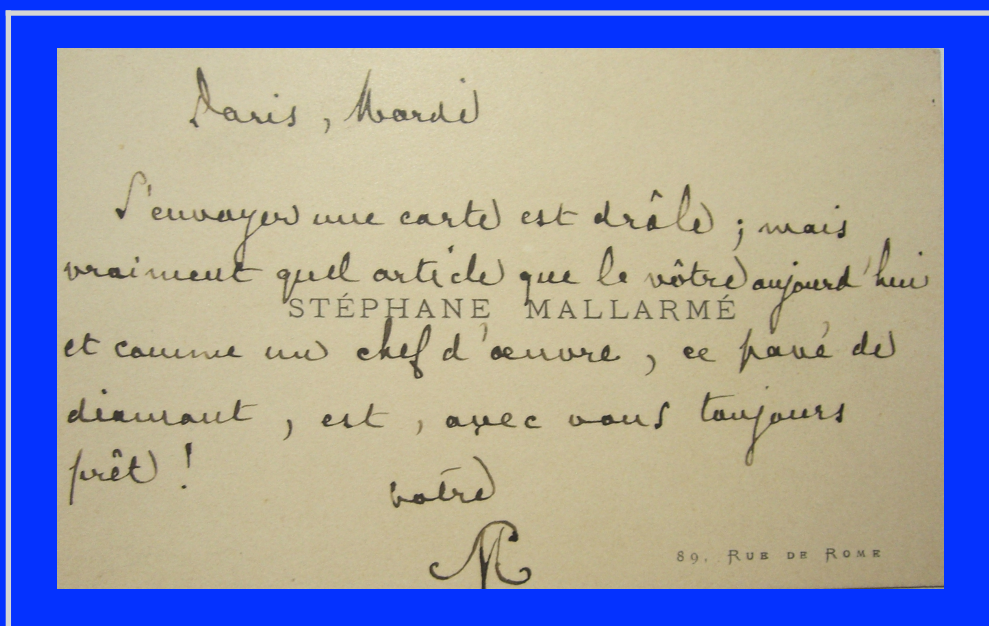 Paris, Mardi
S'envoyer une carte est drôle ; mais
vraiment quel article que le vôtre aujourd'hui
STÉPHANE MALLARMÉ
et comme un chef d'œuvre, ce pavé de
diamant, est, avec vous toujours
prêt !
votre
SM
89, RUE DE ROME